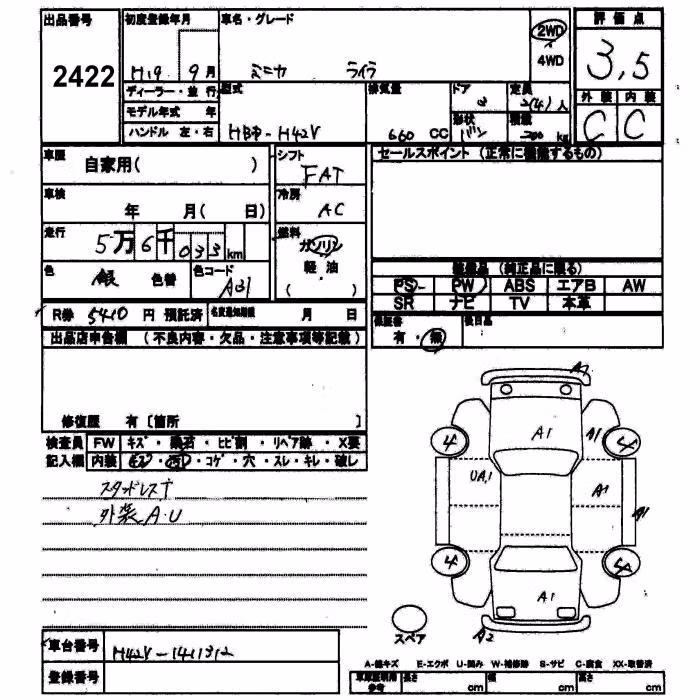 出品番号 初度登録年月 車名・グレード 評価点
2422 H19 9月 ミニカ ライラ 2WD 4WD 3.5
ディーラー・並行 型式 排気量 ドア 定員 2(4)人 外装 内装
モデル年式 年 形状 積載 C C
ハンドル 左・右 HBD-H42V 660 CC バン 200 kg
車歴 自家用( ) シフト FAT セールスポイント (正常に機能するもの)
車検 年 月( 日) 冷房 AC
走行 5万6千033km 燃料 ガソリン
軽油
色 銀 色替 色コード A31 ( )
装備品 (純正品に限る)
PS PW ABS エアB AW
SR ナビ TV 本革
R券 5410 円 預託済 名変通知期限 月 日 保証書 有・無 後日品
出品店申告欄 (不良内容・欠品・注意事項等記載)
修復歴 有 [箇所 ]
検査員 FW キズ・飛石・ヒビ割・リペア跡・X要
記入欄 内装 コゲ・穴・スレ・キレ・破レ
スタッドレスT
外装A.U
A1
4 A1 A1 4
UA1 A1 A1
4
A1
スペア A2
車台番号 H42V-1411312
登録番号
A-線キズ E-エクボ U-凹み W-補修跡 S-サビ C-腐食 XX-取替済
車庫証明用参考 長さ cm 幅 cm 高さ cm